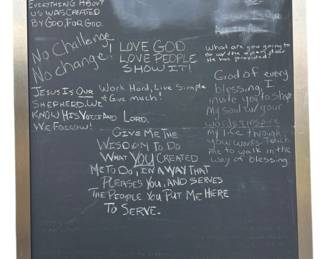 EVERYTHING ABOUT
US WAS CREATED
BY GOD, FOR GOD.
No Challenge,
No change!
I LOVE GOD
LOVE PEOPLE
SHOW IT!
What are you going to
do w/ the
He has provided
JESUS IS OUR
SHEPHERD. WE
KNOW HIS VOICE AND
WE FOLLOW!
Work Hard, Live Simple
+ Give much!
LORD,
GIVE ME THE
WISDOM TO DO
WHAT YOU CREATED
ME TO DO, IN A WAY THAT
PLEASES YOU, AND SERVES
THE PEOPLE YOU PUT ME HERE
TO SERVE.
God of every
blessing, I
invite you to
my soul w/ your
my life through
your
me to walk in the
way of blessing